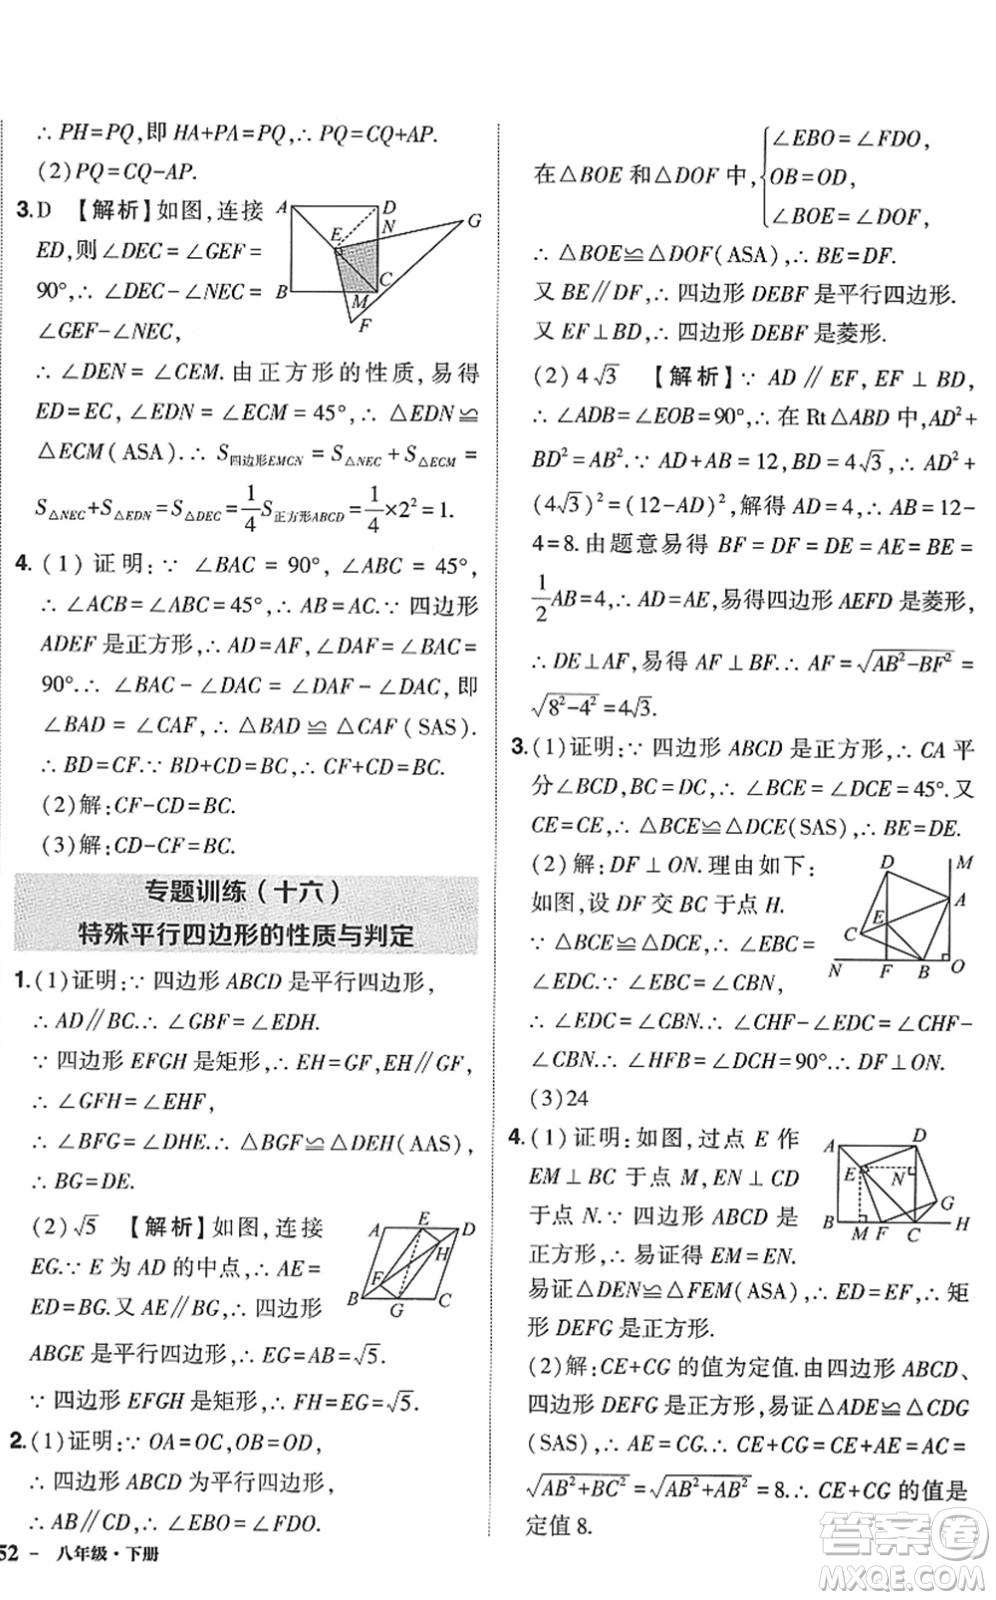 ∴ PH=PQ,即 HA+PA=PQ,∴ PQ=CQ+AP.
(2)PQ=CQ-AP.
3.D 【解析】如图,连接
ED,则∠DEC=∠GEF=
90°,∴ ∠DEC-∠NEC=
∠GEF-∠NEC,
∴ ∠DEN=∠CEM.由正方形的性质,易得
ED=EC,∠EDN=∠ECM=45°,∴ △EDN≌
△ECM(ASA).∴ S四边形EMCN=S△NEC+S△ECM=
S△NEC+S△EDN=S△DEC=1/4S正方形ABCD=1/4×2²=1.
A D N G E B M C F
4.(1)证明:∵ ∠BAC=90°,∠ABC=45°,
∴ ∠ACB=∠ABC=45°,∴ AB=AC.∵ 四边形
ADEF是正方形,∴ AD=AF,∠DAF=
90°.∴ ∠BAC-∠DAC=∠DAF-∠DAC,即
∠BAD=∠CAF,∴ △BAD≌△CAF(SAS).
∴ BD=CF.∵ BD+CD=BC,∴ CF+CD=BC.
(2)解:CF-CD=BC.
(3)解:CD-CF=BC.
专题训练(十六)
特殊平行四边形的性质与判定
1.(1)证明:∵ 四边形ABCD是平行四边形,
∴ AD∥BC.∴ ∠GBF=∠EDH.
∵ 四边形EFGH是矩形,∴ EH=GF,EH∥GF,
∴ ∠GFH=∠EHF,
∴ ∠BFG=∠DHE.∴ △BGF≌△DEH(AAS),
∴ BG=DE.
(2)√5 【解析】如图,连接
EG.∵ E为AD的中点,∴ AE=
ED=BG.又AE∥BG,∴ 四边形
ABGE是平行四边形,∴ EG=AB=√5.
∵ 四边形EFGH是矩形,∴ FH=EG=√5.
A E D H F B G C
2.(1)证明:∵ OA=OC,OB=OD,
∴ 四边形ABCD为平行四边形,
∴ AB∥CD,∴ ∠EBO=∠FDO.
52 - 八年级·下册
在△BOE和△DOF中,{∠EBO=∠FDO,
OB=OD,
∠BOE=∠DOF,
∴ △BOE≌△DOF(ASA),∴ BE=DF.
又BE∥DF,∴ 四边形DEBF是平行四边形.
又EF⊥BD,∴ 四边形DEBF是菱形.
(2)4√3 【解析】∵ AD∥EF,EF⊥BD,
∴ ∠ADB=∠EOB=90°,∴ 在Rt△ABD中,AD²+
BD²=AB².∵ AD+AB=12,BD=4√3,∴ AD²+
(4√3)²=(12-AD)²,解得AD=4,∴ AB=12-
4=8.由题意易得BF=DF=DE=AE=BE=
1/2AB=4,∴ AD=AE,易得四边形AEFD是菱形,
∴ DE⊥AF,易得AF⊥BF.∴ AF=√(AB²-BF²)=
√(8²-4²)=4√3.
3.(1)证明:∵ 四边形ABCD是正方形,∴ CA平
分∠BCD,BC=DC,∴ ∠BCE=∠DCE=45°.又
CE=CE,∴ △BCE≌△DCE(SAS),∴ BE=DE.
(2)解:DF⊥ON.理由如下:
如图,设DF交BC于点H.
∵ △BCE≌△DCE,∴ ∠EBC=
∠EDC.∵ ∠EBC=∠CBN,
∴ ∠EDC=∠CBN.∴ ∠CHF-∠EDC=∠CHF-
∠CBN.∴ ∠HFB=∠DCH=90°.∴ DF⊥ON.
(3)24
D M A E C N F B O
4.(1)证明:如图,过点E作
EM⊥BC于点M,EN⊥CD
于点N.∵ 四边形ABCD是
正方形,∴ 易证得EM=EN.
易证△DEN≌△FEM(ASA),∴ ED=EF,∴ 矩
形DEFG是正方形.
(2)解:CE+CG的值为定值.由四边形ABCD、
四边形DEFG是正方形,易证△ADE≌△CDG
(SAS),∴ AE=CG.∴ CE+CG=CE+AE=AC=
√(AB²+BC²)=√(AB²+AB²)=8.∴ CE+CG的值是
定值8.
A D E N G B M F C H
答案卷
MXQE.COM